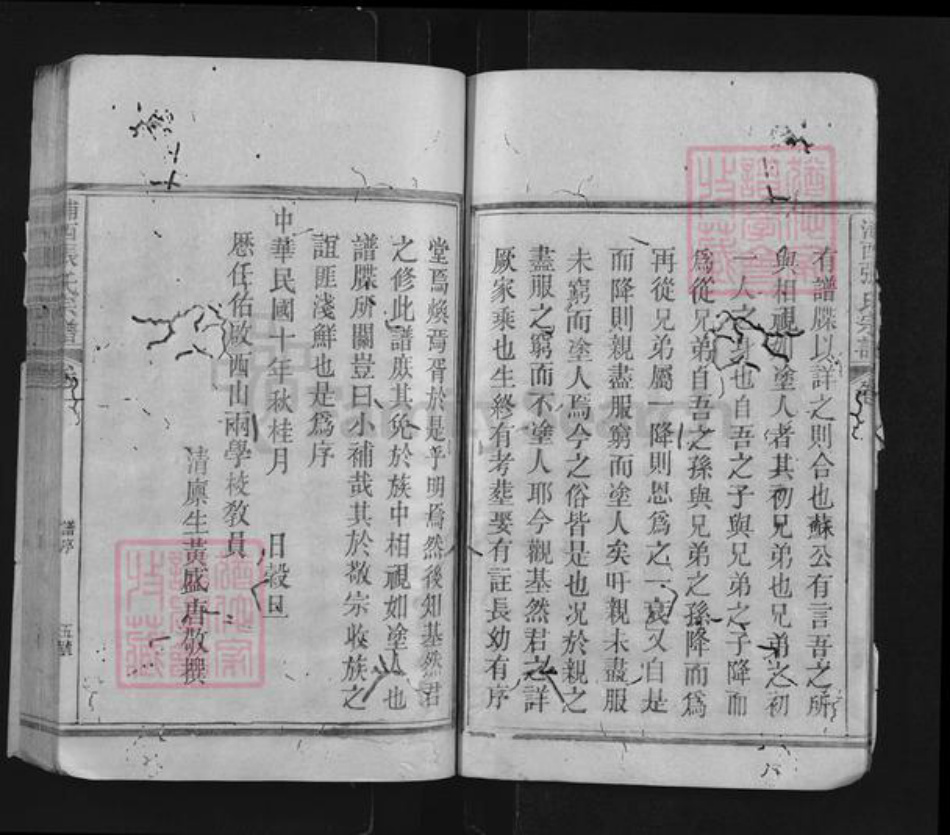 有譜牒以詳之則合也蘇公有言吾之所
與相視如塗人者其初兄弟也兄弟之初
一人之身也自吾之子與兄弟之子降而
爲從兄弟自吾之孫與兄弟之孫降而爲
再從兄弟屬一降則恩爲之一衰又自是
而降則親盡服窮而塗人矣吁親未盡服
未窮而塗人焉今之俗皆是也况於親之
盡服之窮而不塗人耶今觀基然君之詳
厥家乘也生終有考塟娶有註長幼有序
堂焉煥焉胥於是乎明焉然後知基然君
之修此譜庶其免於族中相視如塗人也
譜牒所關豈曰小補哉其於敬宗收族之
誼匪淺鮮也是爲序
中華民國十年秋桂月 日穀旦
歷任佑啟西山兩學校敎員
清廩生黃盛唐敬撰
浦西張氏宗譜
譜序
五號
FamilySearch